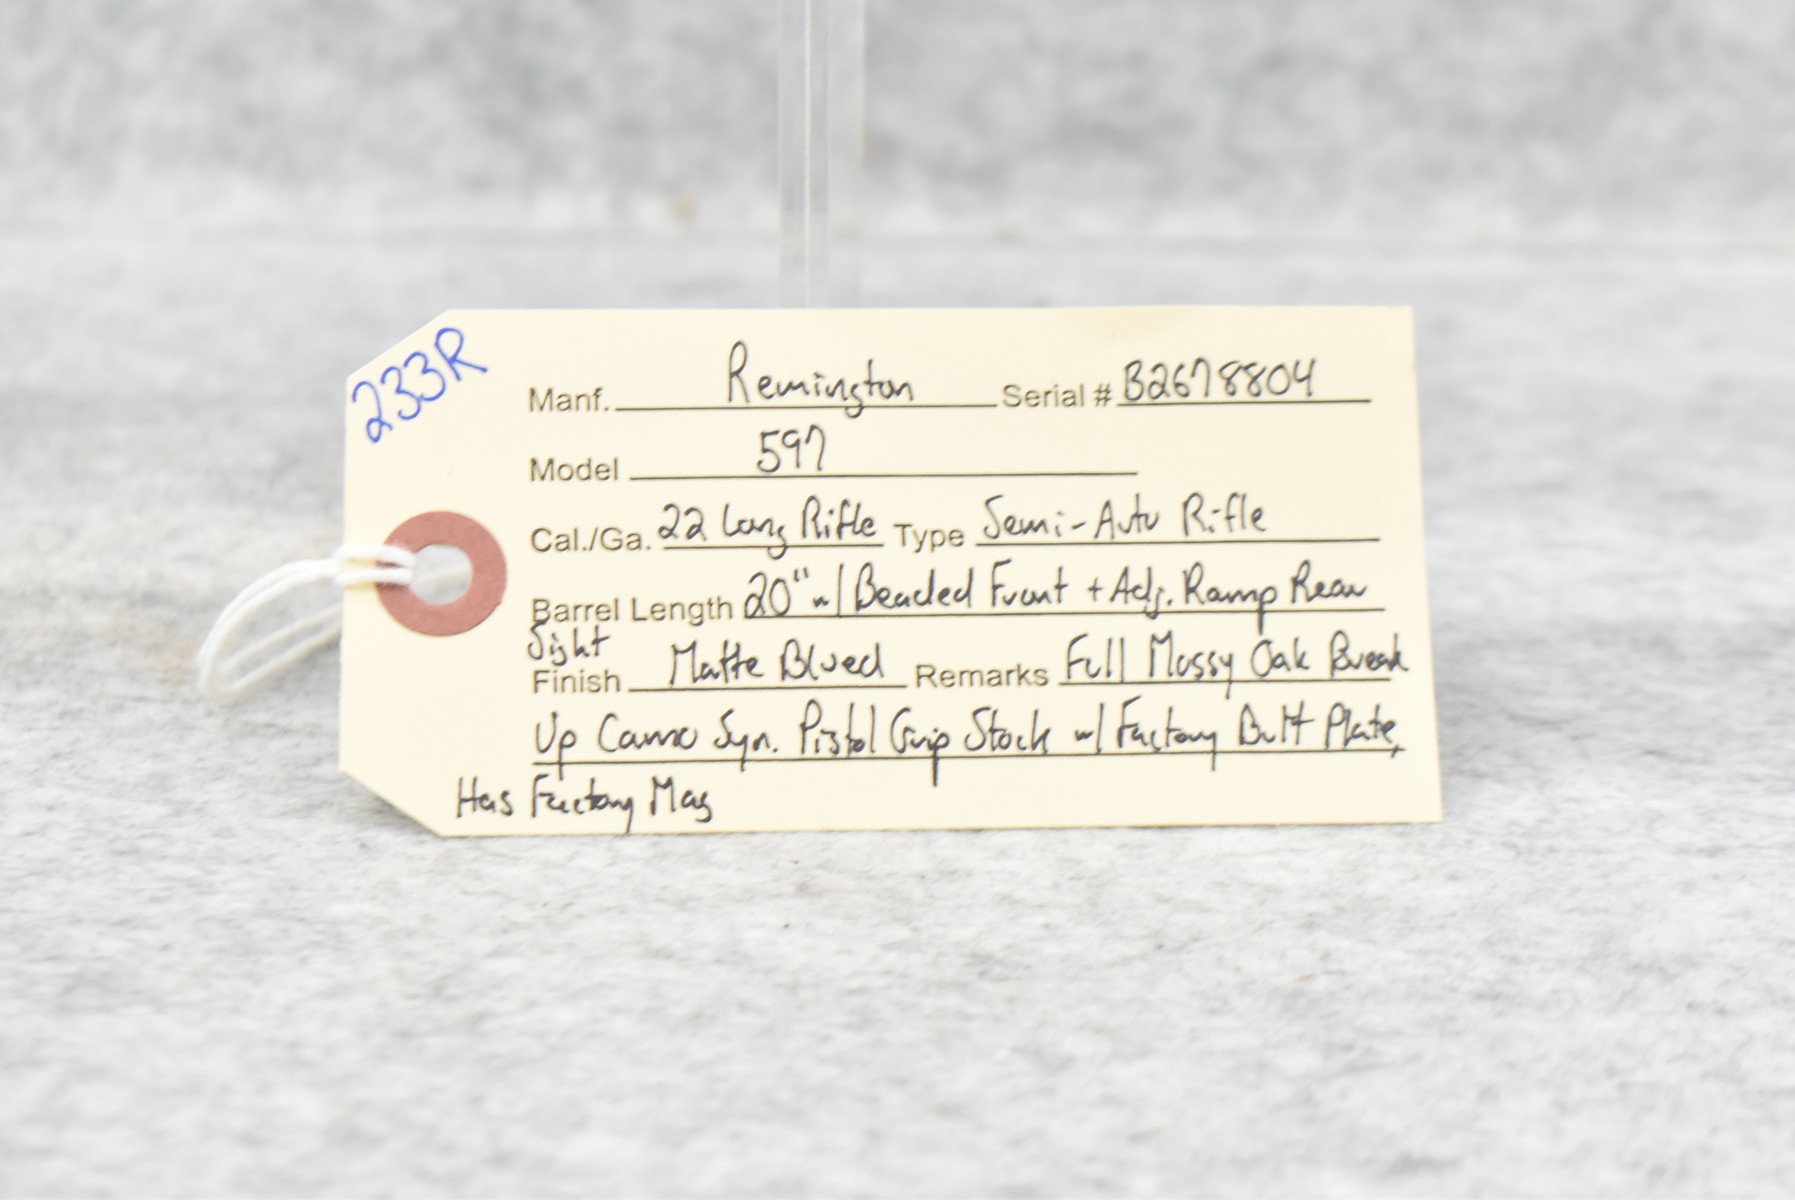 233R
Manf. Remington Serial # B2678804
Model 597
Cal./Ga. 22 Long Rifle Type Semi-Auto Rifle
Barrel Length 20" w/ Beaded Front + Adj. Ramp Rear
Sight
Finish Matte Blued Remarks Full Mossy Oak Break
Up Camo Syn. Pistol Grip Stock w/ Factory Butt Plate,
Has Factory Mag